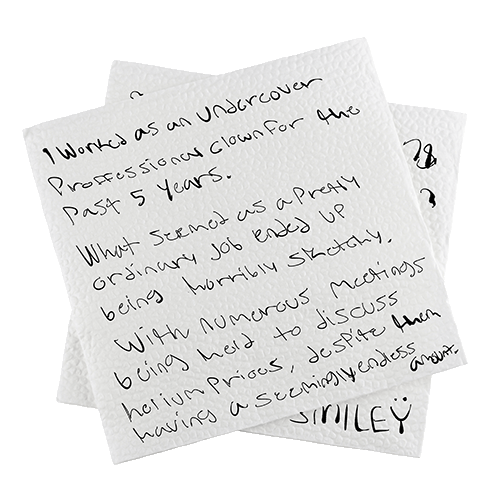 I worked as an undercover
Proffessional clown for the
past 5 years.
What seemed as a pretty
ordinary job ended up
being horribly sketchy.
With numerous meetings
being held to discuss
helium prices, despite them
having a seemingly endless amount.
SMILEŸ